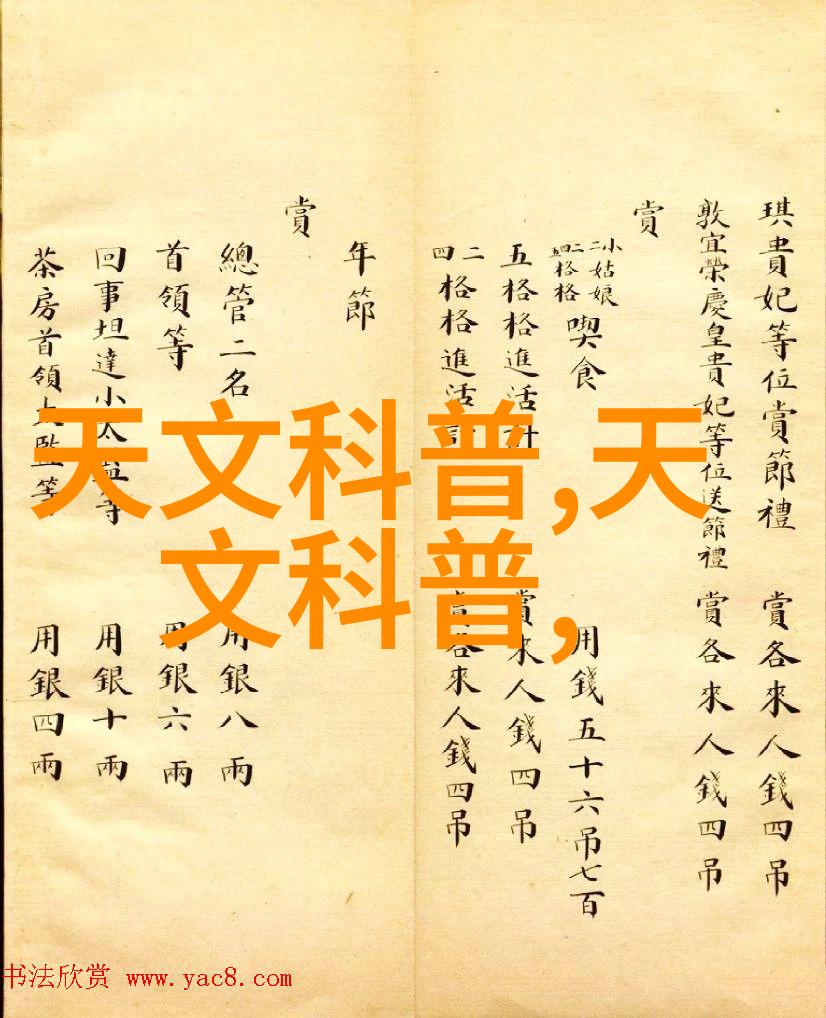 琪貴妃等位賞節禮 賞各來人錢四吊
敦宜榮慶皇貴妃等位送節禮 賞各來人錢四吊
賞
小姑娘
二二格格
四格格
喫食 用錢五十六吊七百
五格格進活計 賞來人錢四吊
二
四格格進活計 賞各來人錢四吊
年節
賞
總管二名 用銀八兩
首領等 用銀六兩
回事坦達小太監等 用銀十兩
茶房首領太監等 用銀四兩
天文科普,天
文科普,
书法欣赏 www.yac8.com